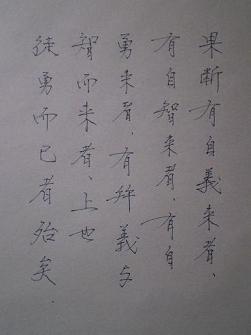 果断有自義来者、
有自智来者、有自
勇来者、有并義与
智而来者、上也
徒勇而已者殆矣.